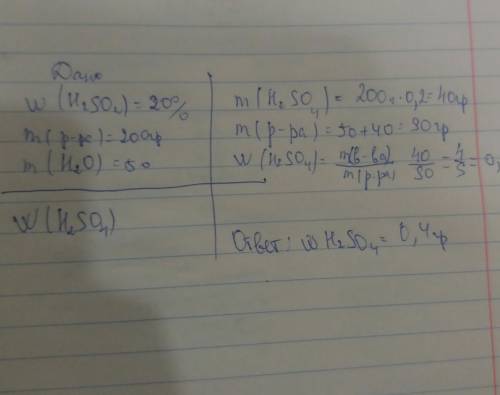 Дано
w (H₂SO₄) = 20%
m (р-ра) = 200гр
m (H₂O) = 50
W (H₂SO₄)
m (H₂SO₄) = 200 · 0,2 = 40гр
m (р-ра) = 50 + 40 = 90гр
W (H₂SO₄) = m(в-ва) / m(р-ра) 40/90 = 4/9 = 0,
Ответ: w H₂SO₄ = 0,4гр